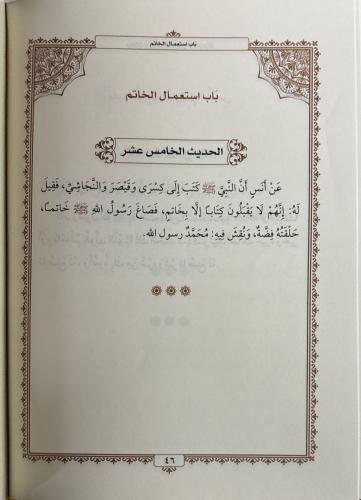 باب استعمال الخاتم
بَاب استعمال الخاتم
الحديث الخامس عشر
عَنْ أَنَسٍ أَنَّ النَّبِيَّ ﷺ كَتَبَ إِلَى كِسْرَى وَقَيْصَرَ وَالنَّجَاشِيِّ، فَقِيلَ
لَهُ: إِنَّهُمْ لَا يَقْبَلُونَ كِتَابًا إِلَّا بِخَاتَمٍ، فَصَاغَ رَسُولُ اللهِ ﷺ خَاتَمًا،
حَلْقَتُهُ فِضَّةٌ، وَنُقِشَ فِيهِ: مُحَمَّدٌ رسول الله.
٤٦